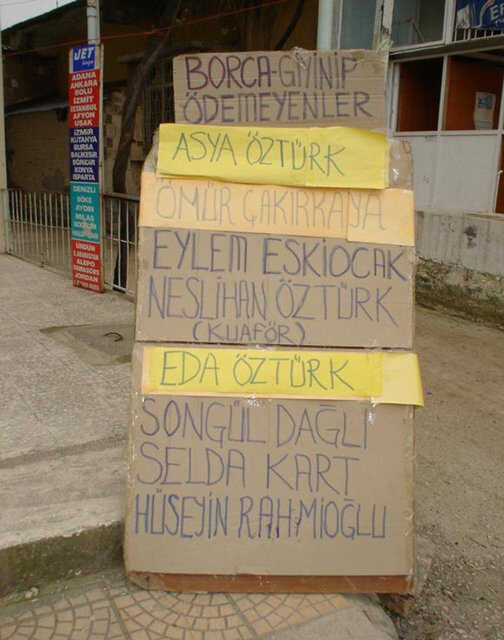 BORCA-GİYİNİP
ÖDEMEYENLER
ASYA ÖZTÜRK
ÖMÜR ÇAKIRKAYA
EYLEM ESKİOCAK
NESLİHAN ÖZTÜRK
(KUAFÖR)
EDA ÖZTÜRK
SONGÜL DAĞLI
SELDA KART
HÜSEYİN RAHMİOĞLU
JET
ADANA
ANKARA
BOLU
İZMİT
İSTANBUL
AFYON
UŞAK
İZMİR
KÜTAHYA
BURSA
BALIKESİR
SÖNGÜR
KONYA
ISPARTA
DENİZLİ
SÖKE
AYDIN
MİLAS